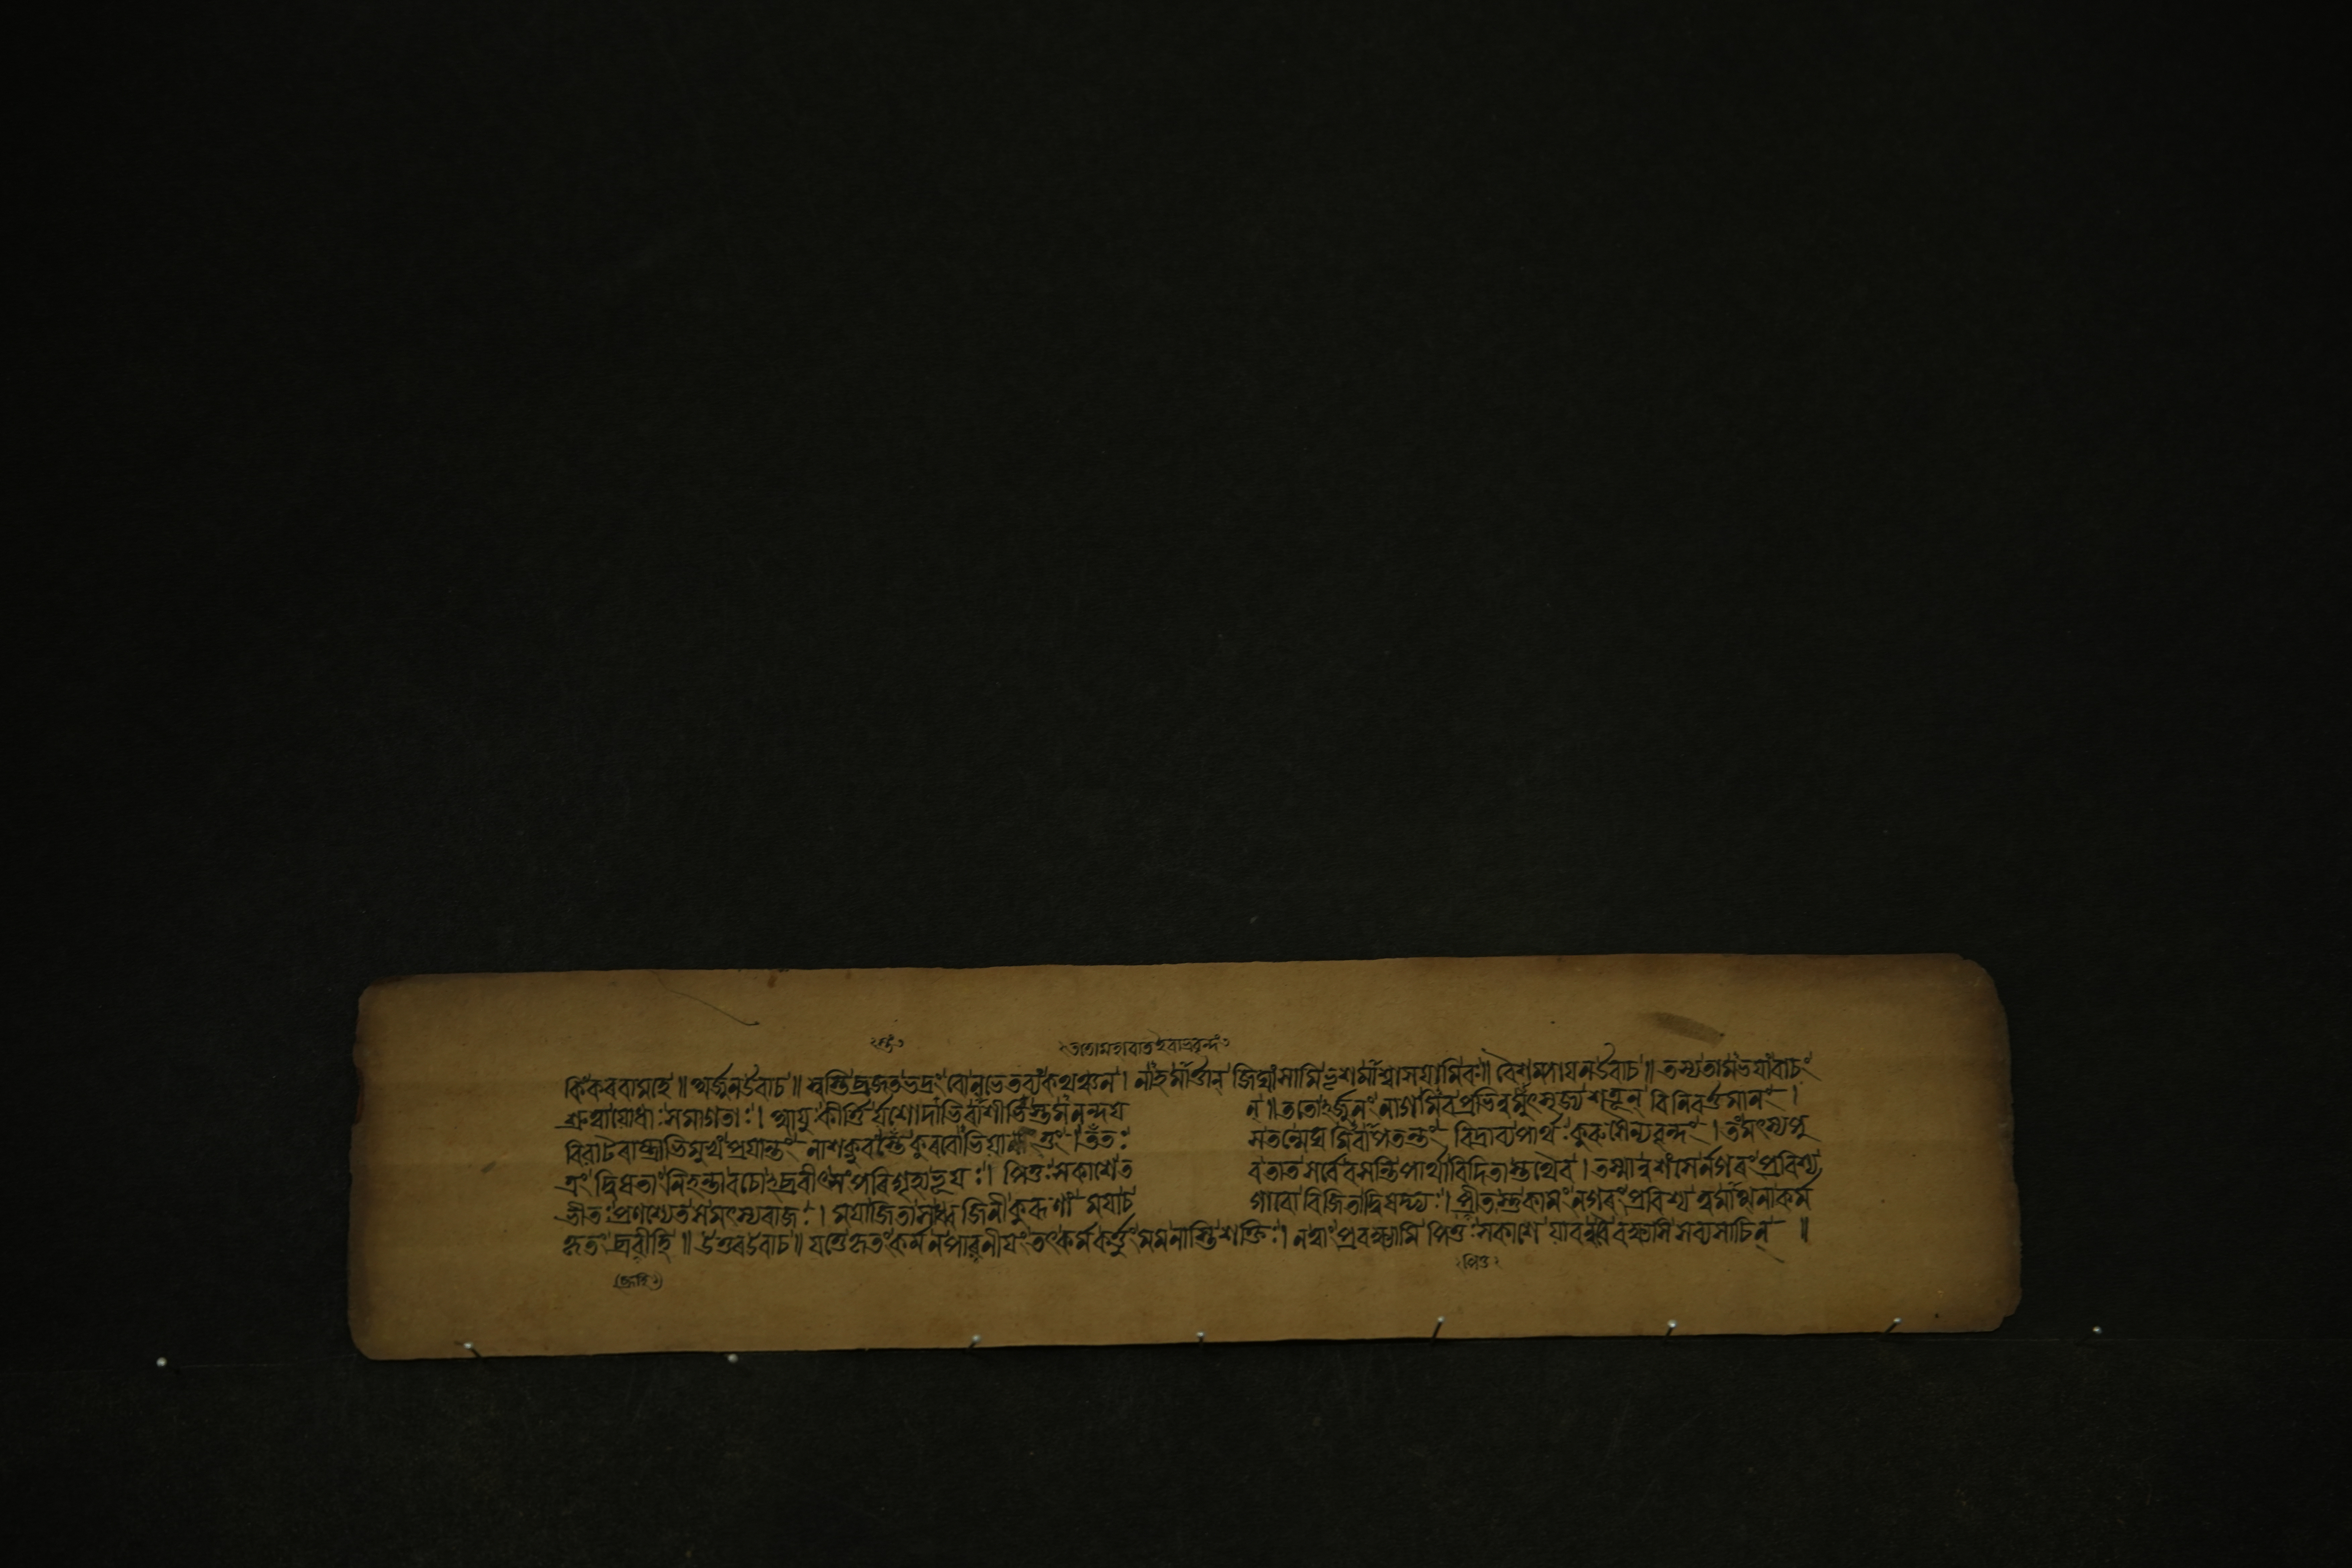 কিংকৰবামহে ॥ অৰ্জুনউবাচ ॥ স্বস্তিব্ৰজতভদ্ৰং বোনভেতব্যংকথঞ্চন । নাহমাৰ্ত্তান্ জিঘাংসামি ভৃশমাশ্বাসয়ামিবঃ ॥ বৈশম্পায়নউবাচ ॥ তস্যতামভয়াংবাচং
শ্ৰুত্বাযোধাঃসমাগতাঃ । আয়ুঃকীৰ্ত্তিৰ্যশোদাভিৰাশীৰ্ভিস্তমনন্দয় ন্ ॥ ততোৰ্জুনং নাগমিবপ্ৰভিন্নমুৎসৃজ্যশত্ৰূন্ বিনিবৰ্ত্তমানং ।
বিৰাটৰাষ্ট্ৰাভিমুখংপ্ৰয়ান্তং নাশক্নুবংস্তেকুৰবোভিয়াতুং । ততঃ সতন্মেঘমিবাপতন্তং বিদ্ৰাব্যপাৰ্থঃকুৰুসৈন্যবৃন্দং । তংমৎস্যপু
ত্ৰং দ্বিষতাংনিহন্তাবচোঽব্ৰবীৎসংপৰিগৃহ্যভূয়ঃ । পিতুঃসকাশেত বতাতসৰ্ব্বেবসন্তিপাৰ্থাবিদিতাস্তথৈব । তস্মান্নশংসেৰ্নগৰংপ্ৰবিশ্য
ভীতঃপ্ৰণশ্যেতসমৎস্যৰাজঃ । ময়াজিতাসাধ্বজিনীকুৰূণাং ময়াচ গাবোবিজিতাদ্বিষদ্ভ্যঃ । প্ৰীতস্তুকামংনগৰংপ্ৰবিশ্য ত্বমাত্মনাকৰ্ম
কৃতংব্ৰবীহি ॥ উত্তৰউবাচ ॥ যত্তেকৃতংকৰ্মনপাৰণীয়ংতৎকৰ্মকৰ্ত্তুংমমনাস্তিশক্তিঃ । নত্বাংপ্ৰবক্ষ্যামি পিতুঃসকাশে যাবন্নমাংবক্ষ্যসিসব্যসাচিন্ ॥
পিতু